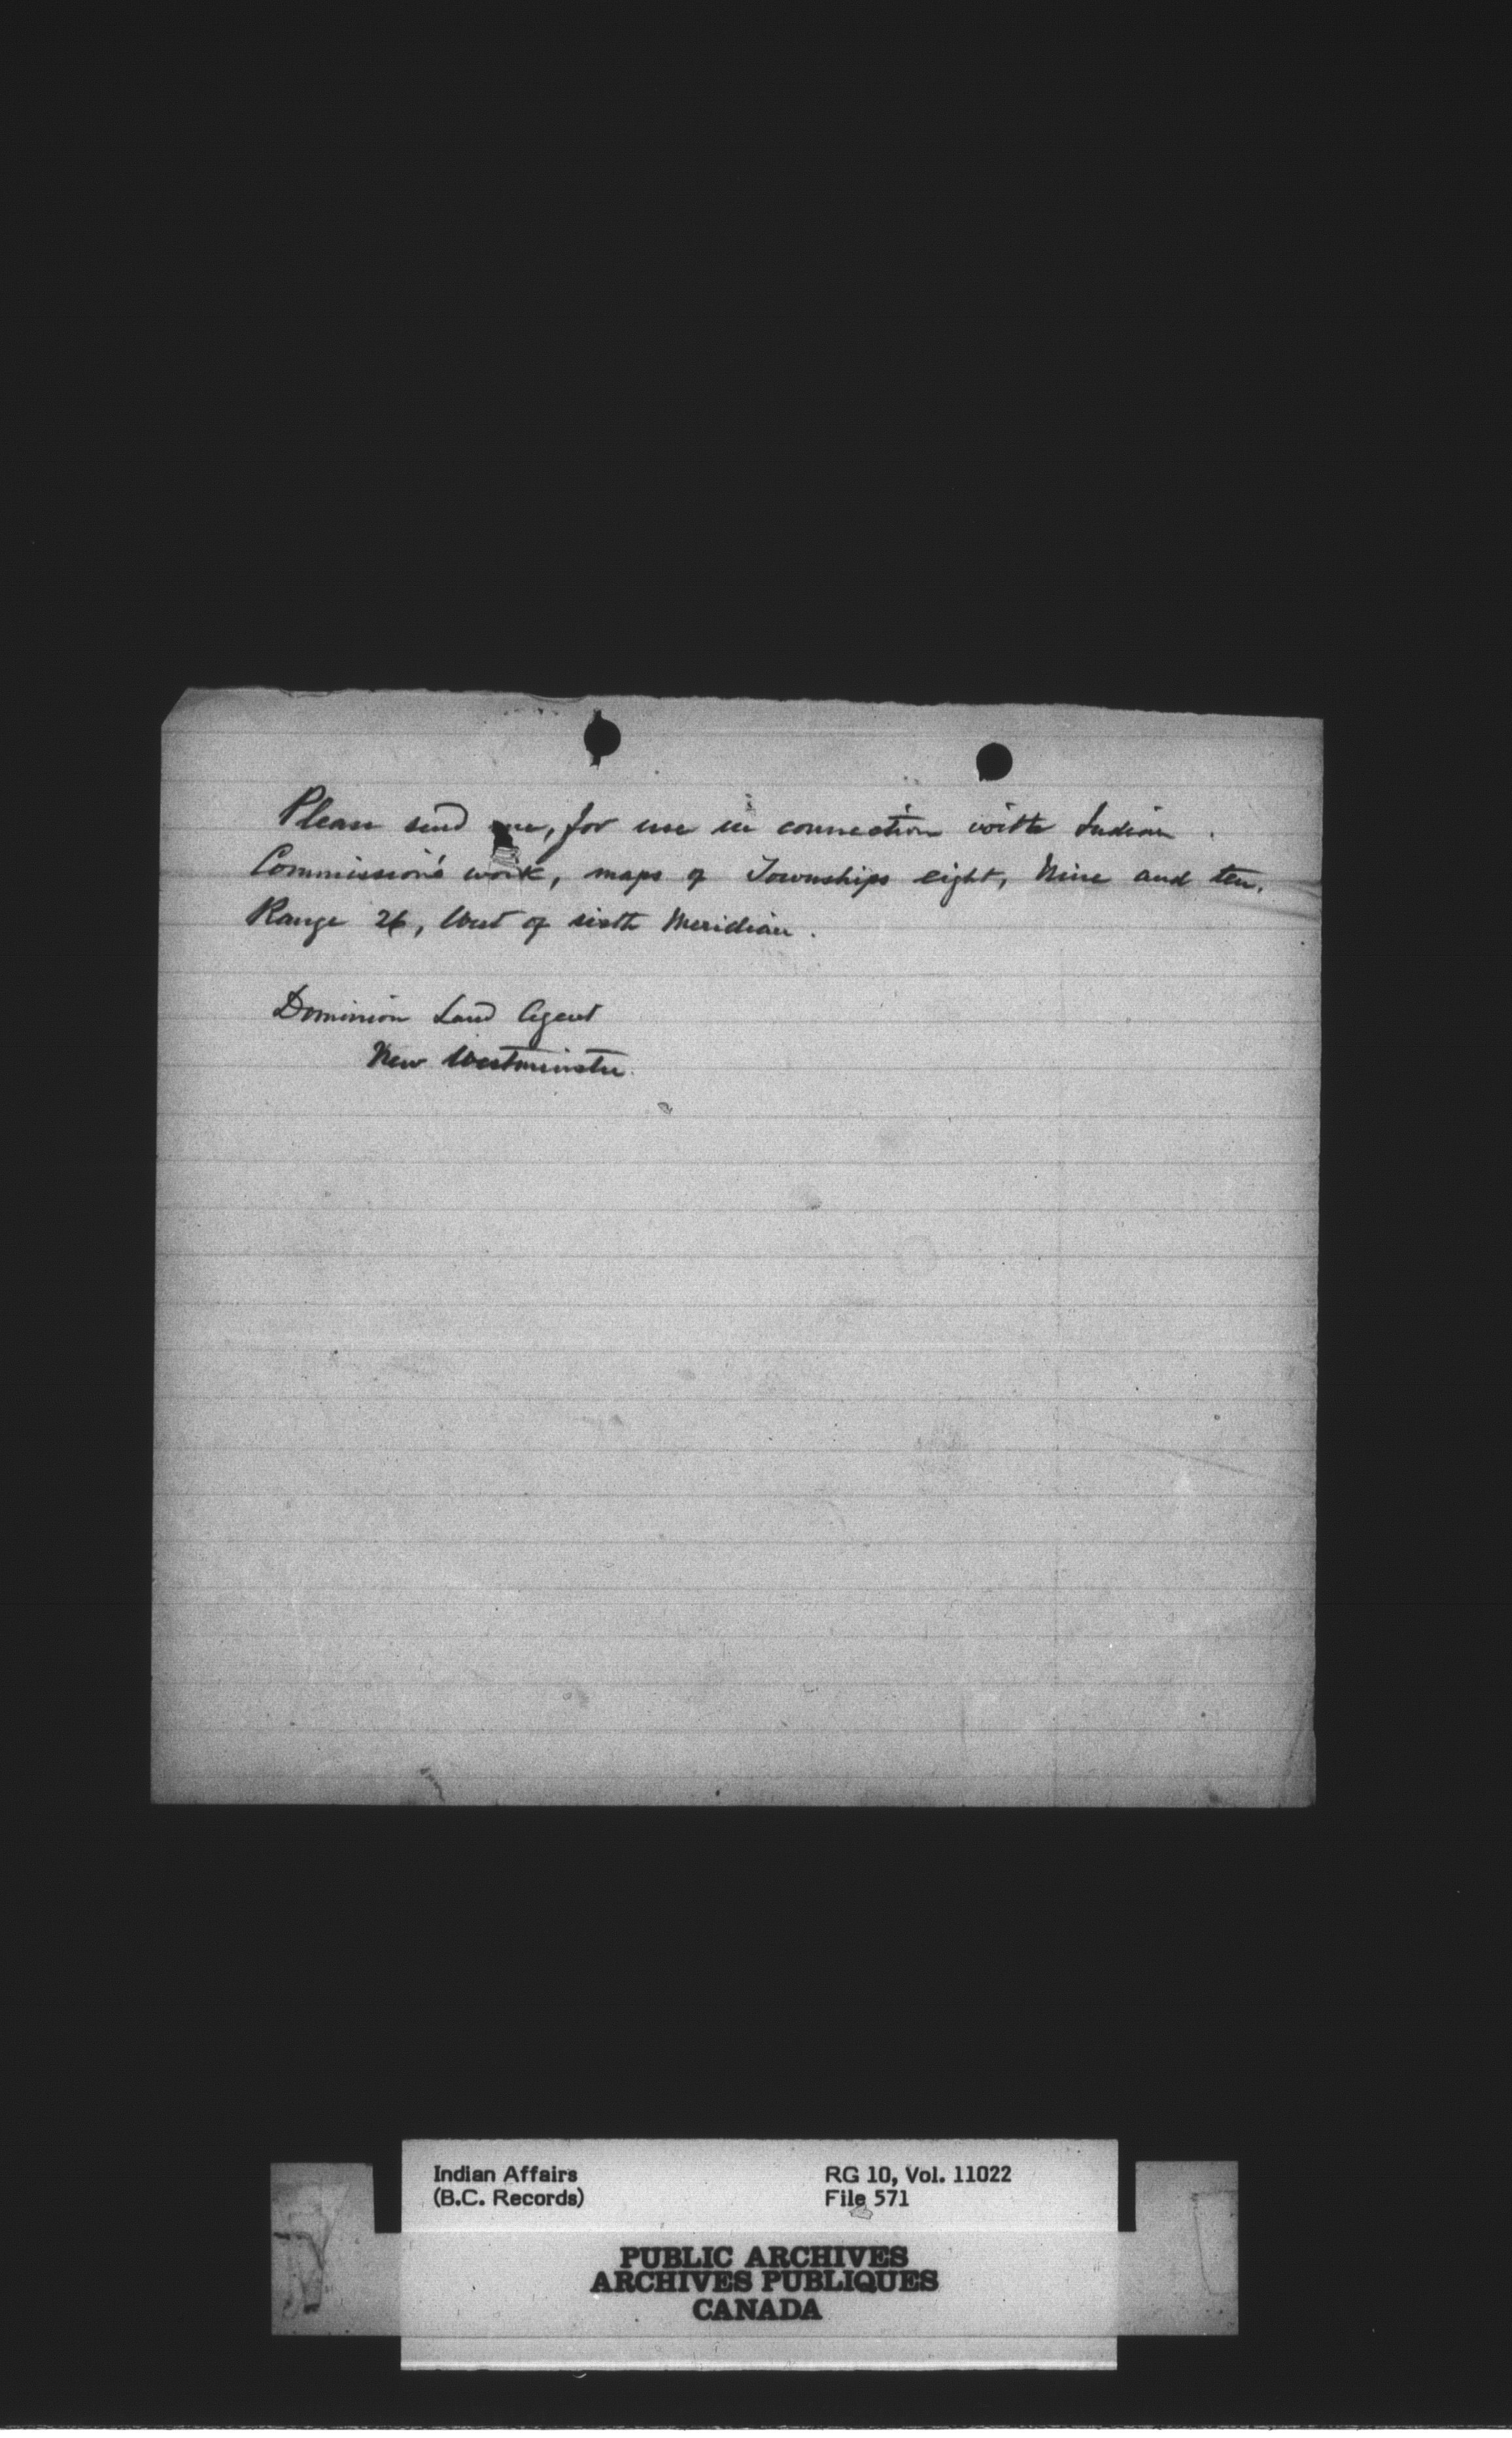 Please send me, for use in connection with Indian
Commission's work, maps of Townships eight, Nine and ten,
Range 26, West of sixth Meridian.
Dominion Land Agent
New Westminster.
Indian Affairs
(B.C. Records)
RG 10, Vol. 11022
File 571
PUBLIC ARCHIVES
ARCHIVES PUBLIQUES
CANADA